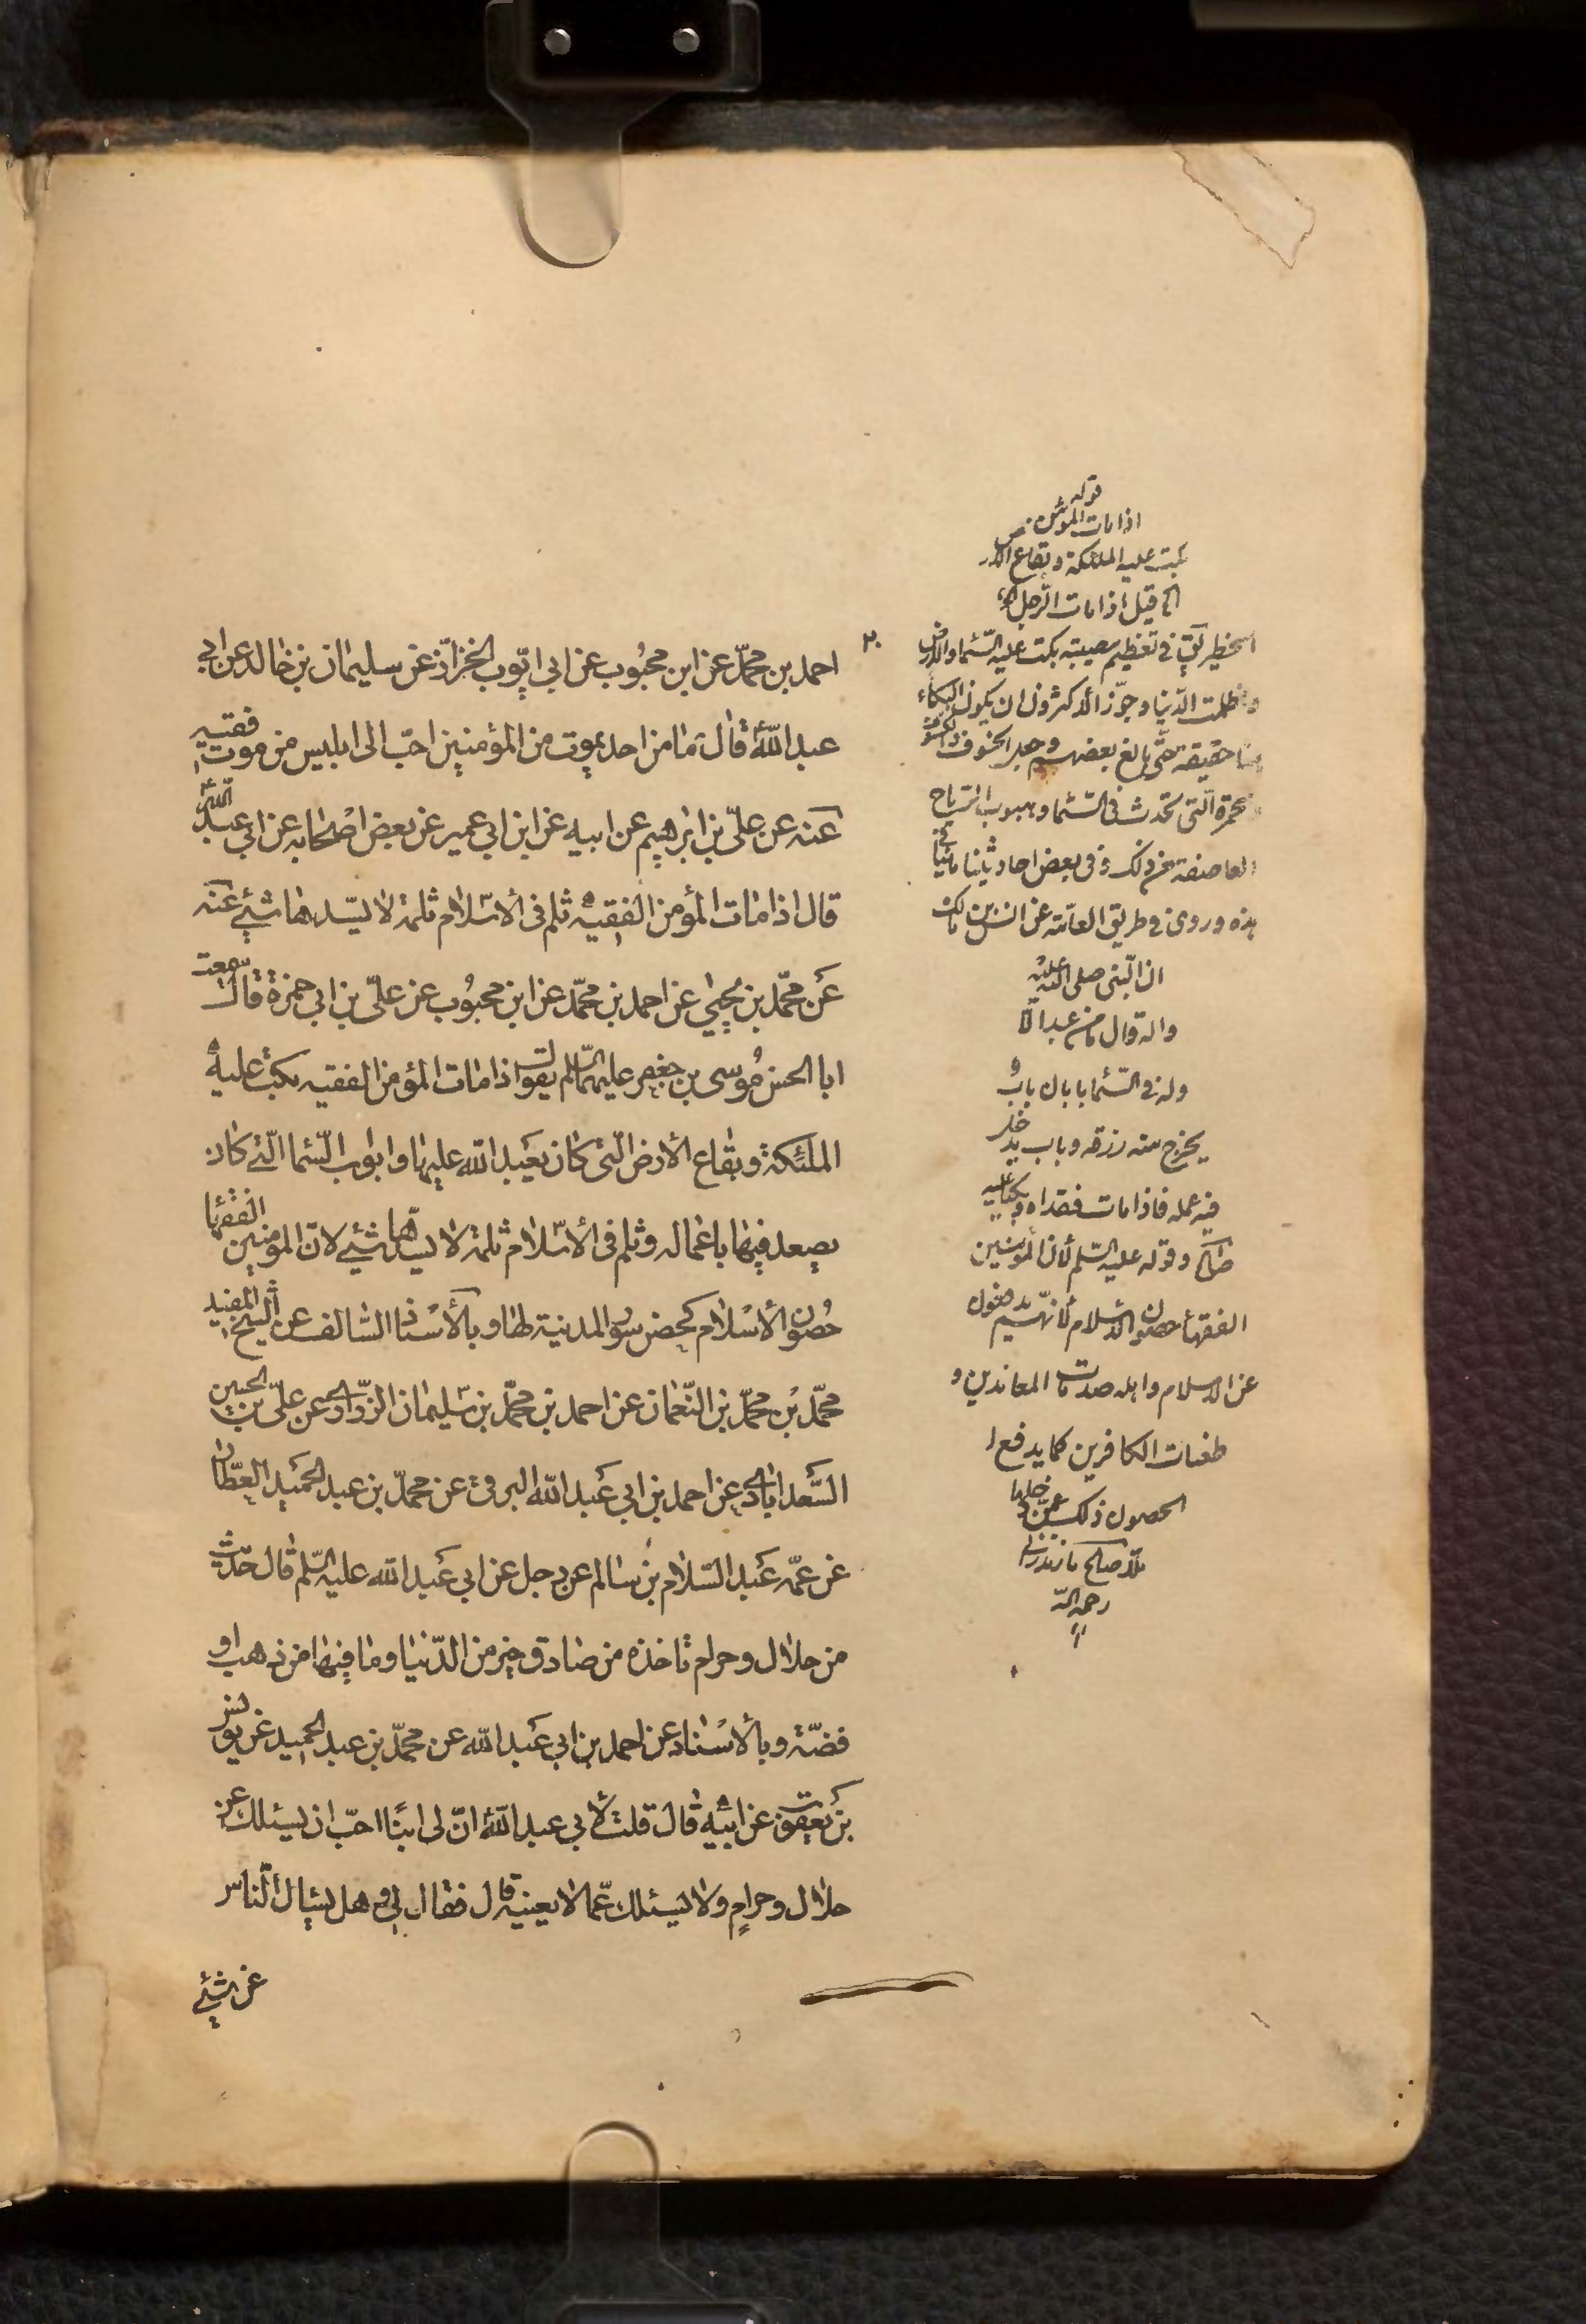 احمد بن محمّد عن ابن محبُوب عن ابي ايّوب الخزاز عن سليمان بن خالد عن ابي
عبد اللّه قال ما من احد يموت من المؤمنين احبّ الى ابليس من موت فقيه
عنه عن علىّ بن ابرهيم عن ابيه عن ابن ابي عمير عن بعض اصحابه عن ابي عبد اللّه
قال اذا مات المؤمن الفقيه ثلم فى الاسلام ثلمة لا يسّدها شئ عنه
عن محمّد بن يحيى عن احمد بن محمّد عن ابن محبُوب عن علىّ بن ابي حمزة قال سمعت
ابا الحسن مُوسى بن جعفر عليهما السّلم يقول اذا مات المؤمن الفقيه بكت عليه
الملئكة وبقاع الأرض الّتى كان يعبد الله عليها وابوب السّما الّتى كان
يصعد فيها باعماله وثلم فى الأسّلام ثلمة لا يسدّها شئ لانّ المومنين الفقها
حُصون الأسْلام كحصن سور المدينة لها وبالأسْناد السالف عن الشيخ المفيد
محمّد بن محمّد بن النّعمان عن احمد بن محمّد بن سّليمان الزّرارى عن علىّ بن الحسين
السّعدابادى عن احمد بن ابي عبد الله البرقى عن محمّد بن عبد الحميد العطّار
عن عمّه عبد السّلام بن سالم عن رجل عن ابي عبد الله عليه السّلم قال حديث
من حلال وحرام تاخذه من صادق خير من الدّنيا وما فيها من ذهب او
فضّة وبالأسْناد عن احمد بن ابي عبد الله عن محمّد بن عبد الحميد عن يونس
بن يعقوب عن ابيه قال قلت لأبي عبد اللّه انّ لى ابنًا احبّ ان يسئلك عن
حلال وحرامٍ ولا يسئلك عمّا لا يعنيه قال فقال لى وهل يسال النّاس
عن شئ
قوله
اذا مات المؤمن
بكت عليه الملئكة وبقاع الارض
كما قيل اذا مات الرّجل
الخطير يق فى تعظيم مصيبته بكت عليه السّماء والارض
واظلمت الدّنيا وجوّز الأكثرون ان يكون البكاء
حقيقة حتّى بالغ بعضهم وجعل الخسوف والكسوف
والحمرة الّتى تحدث فى السّماء وهبوب الرّياح
العاصفة من ذلك وفى بعض احاديثنا ما
هذه وروى فى طريق العامّة عن انس بن مالك
ان النّبى صلى اللّه عليه
واله قال ما من عبد الّا
وله فى السّماء بابان باب
يخرج منه رزقه وباب يدخل
فيه عمله فاذا مات فقداه وبكيا عليه
صالح وقوله عليه السّلم لأن المؤمنين
الفقهاء حصون الاسلام لأنهم يدفعون
عن الاسلام واهله صدمات المعاندين و
طغيات الكافرين كما يدفع
الحصون ذلك عمّن دخلها
ملّا صالح مازندرانى
رحمه اللّه